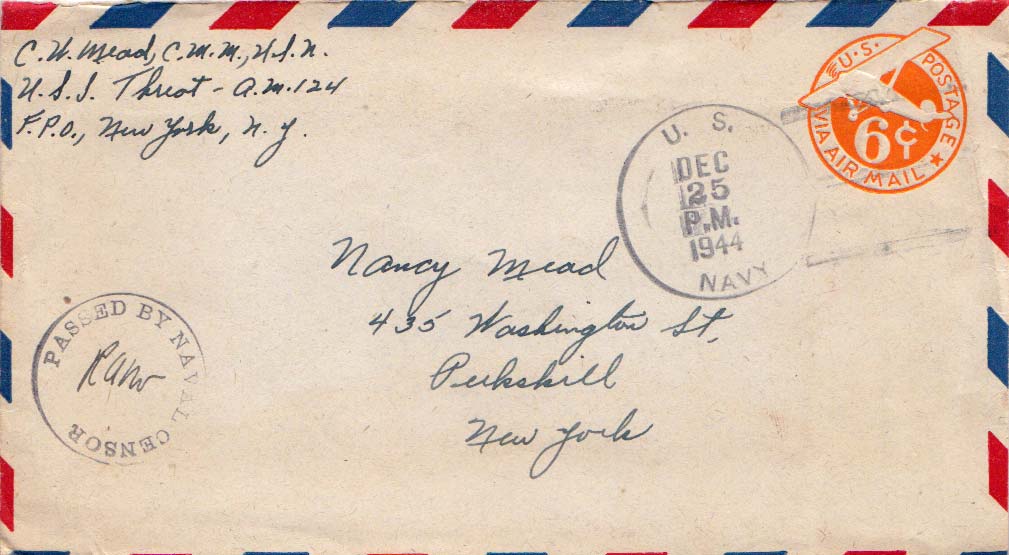 C. W. Mead, C.M.M., U.S.N.
U.S.S. Threat - A.M. 124
F.P.O., New York, N.Y.
U.S. POSTAGE
6¢
VIA AIR MAIL
U. S.
DEC
25
P.M.
1944
NAVY
Nancy Mead
435 Washington St,
Peekskill
New York
PASSED BY NAVAL CENSOR